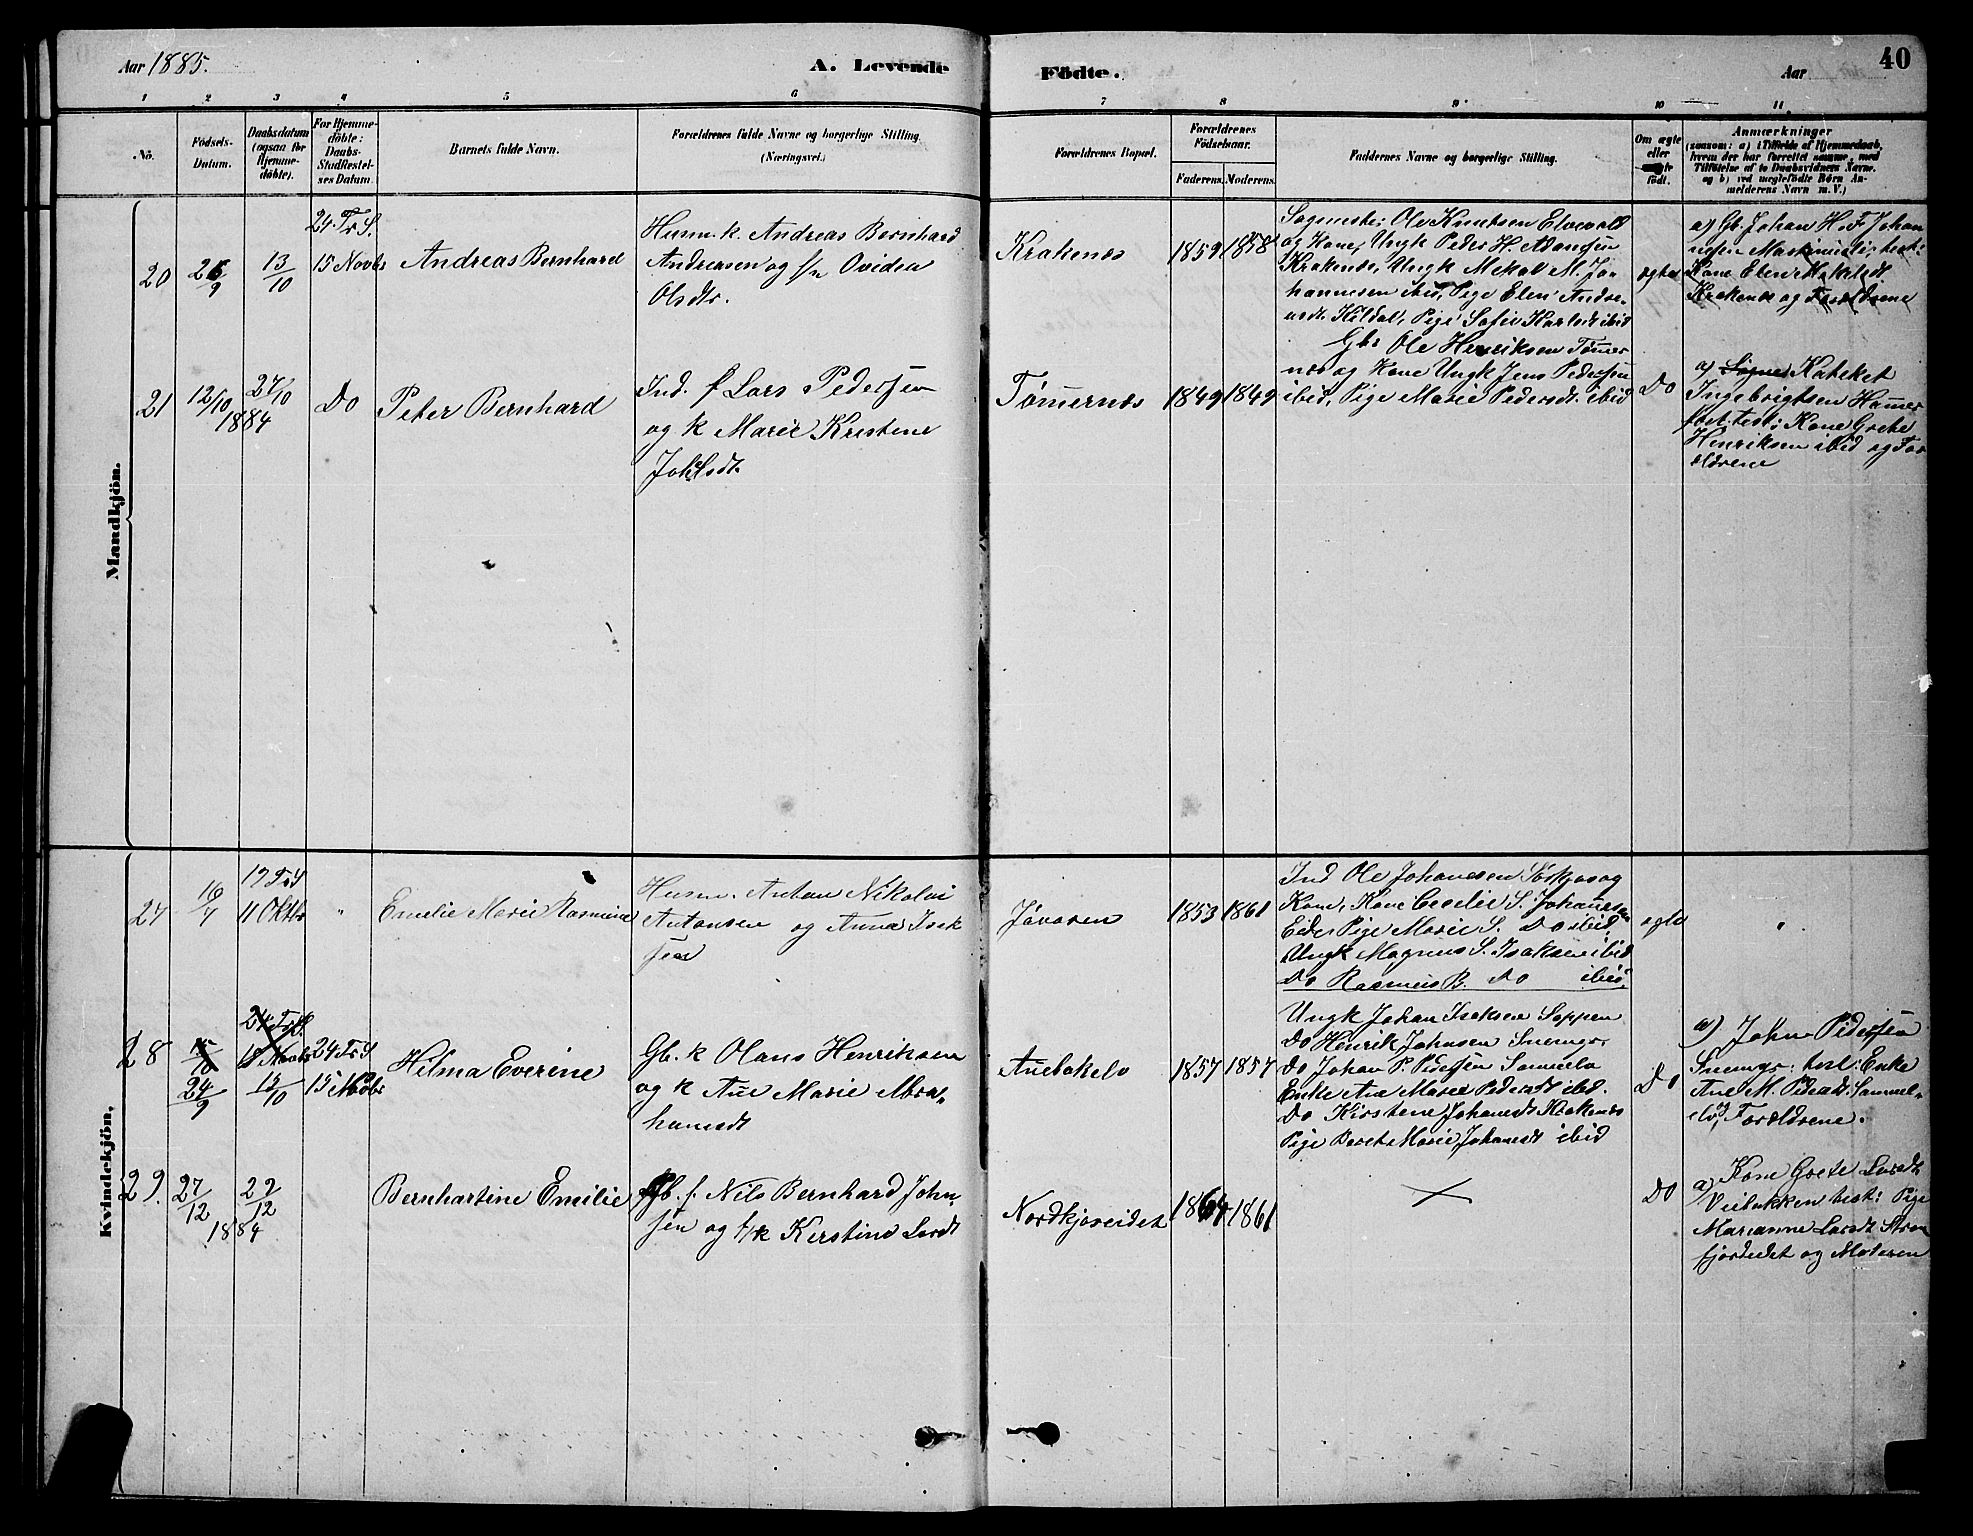 Aar 1885.
A. Levende
Födte.
Aar
40
1 2 3 4 5 6 7 8 9 10 11
No.
Födsels-
Datum.
Daabsdatum
(ogsaa for
Hjemme-
döbte).
For Hjemme-
döbte:
Daabs-
Stadfæstel-
ses Datum.
Barnets fulde Navn.
Forældrenes fulde Navne og borgerlige Stilling
(Næringsvei.)
Forældrenes Bopæl.
Forældrenes
Födselsaar.
Faderens. Moderens.
Faddernes Navne og borgerlige Stilling.
Om ægte
eller
uægte
födt.
Anmærkninger
(saasom: a) i Tilfælde af Hjemmedaab,
hvem der har forrettet samme, med
Tilföielse af to Daabsvidners Navne.
og b) ved uægtefödte Börn An-
melderens Navn m. V.)
Mandkjön.
20
26/9
13/10
24 Tr S.
15 Novbr
Andreas Bernhard
Husm. k. Andreas Bernhard
Andreasen og f/n Ovidea
Olsdtr.
Krakenæs
1859 1858
Ole Knutsen Elvevold
og Kone, Ungk Peder H. Adamsen
Krakenæs, Ungk Mekal M. Jo-
hannesen ibid, Pige Elen Andre-
asdt. Kildal, Pige Sofie Karlsdt ibid
ægte
a) Gb. Johan H. F Johan
nesen
Kone Elen
Krakenæs og Forældrene
21
12/10
27/10
1884
Do
Peter Bernhard
Ind. f Lars Pedersen
og k Marie Kristine
Tømernæs
1849 1849
Gbr Ole Henriksen Tømer
næs og Kone Ungk Jens Pedersen
ibid, Pige Marie Pedersdt. ibid
Do
a) Kateket
Ingebrigtsen Hamer
fest test: Kone Grete
Henriksen ibid og For
ældrene
Kvindekjön.
27
16/7
19 Tr S
11 Oktbr
"
Emelie Marie Rasmine
Husm. Anton Nikolai
Antonsen og Anna Isak
sen
Jövoren
1853 1861
Ind Ole Johanesen og
Kone, Kone Cecilie S. Johansen
Eide, Pige Marie S. Do ibid,
Ungk Magnus S. Isaksen ibid
Do Rasmus B. Do ibid.
ægte
"
28
24/9
13/10
24 Tr S
15 Novbr
Hilma Everine
Gb. k Olaus Henriksen
og k Ane Marie Abra-
hamsdt
1857 1857
Ungk Johan Isaksen Soppen
Do Henrik Johnsen
Do Johan P. Pedersen Samuelv
Enke Ane Marie Pedersdt ibid.
Do Kirstine Johanesdt Krakenæs
Pige Beret Marie Johanesdt ibid
Do
a) John Pedersen
test: Enke
Ane M. Pedersdt. Samuel-
elv, Forældrene.
29.
27/12
29/12
1884
Bernhartine Emilie
Gb. f. Nils Bernhard John
sen og f/k Kerstine Larsdt
Nordkjoseidet
1864 1861
Do
a) Kone Grete Larsdt
Veibakken test: Pige
Marianne Larsdt Strø
fjordeidet og Moderen